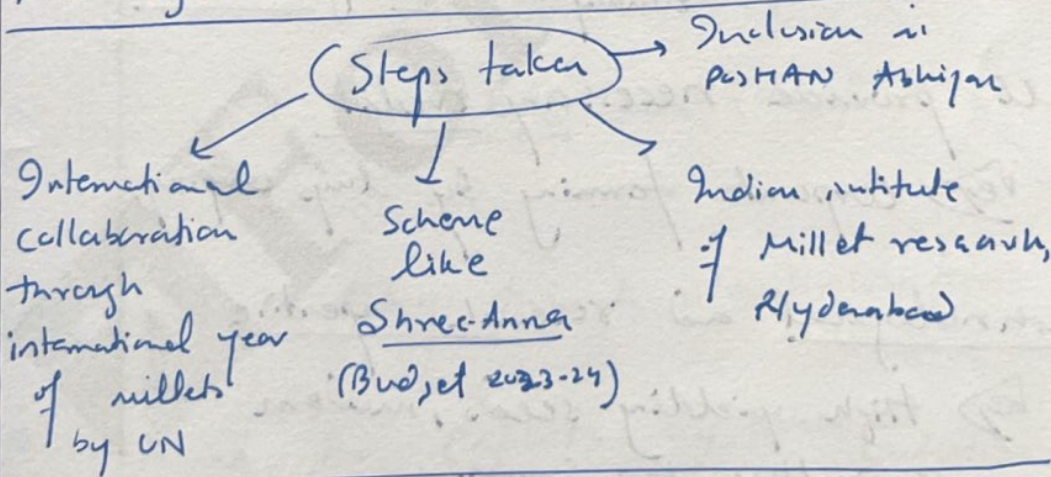 Steps taken
Inclusion in
POSHAN Abhiyan
International
collaboration
through
international year
of millets
by UN
Scheme
like
Shree-Anna
(Budget 2023-24)
Indian intitute
of Millet research,
Hyderabad